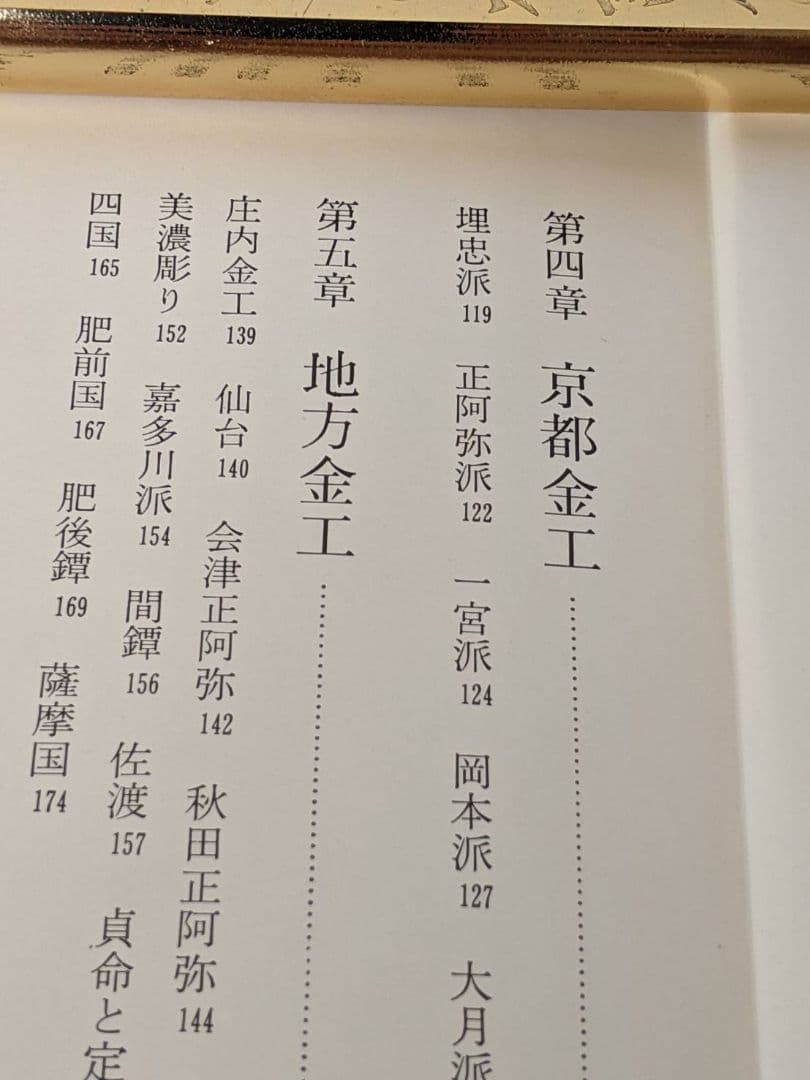 第四章 京都金工
埋忠派 119 正阿弥派 122 一宮派 124 岡本派 127 大月派
第五章 地方金工
庄内金工 139 仙台 140 会津正阿弥 142 秋田正阿弥 144
美濃彫り 152 嘉多川派 154 間鐔 156 佐渡 157 貞命と定
四国 165 肥前国 167 肥後鐔 169 薩摩国 174